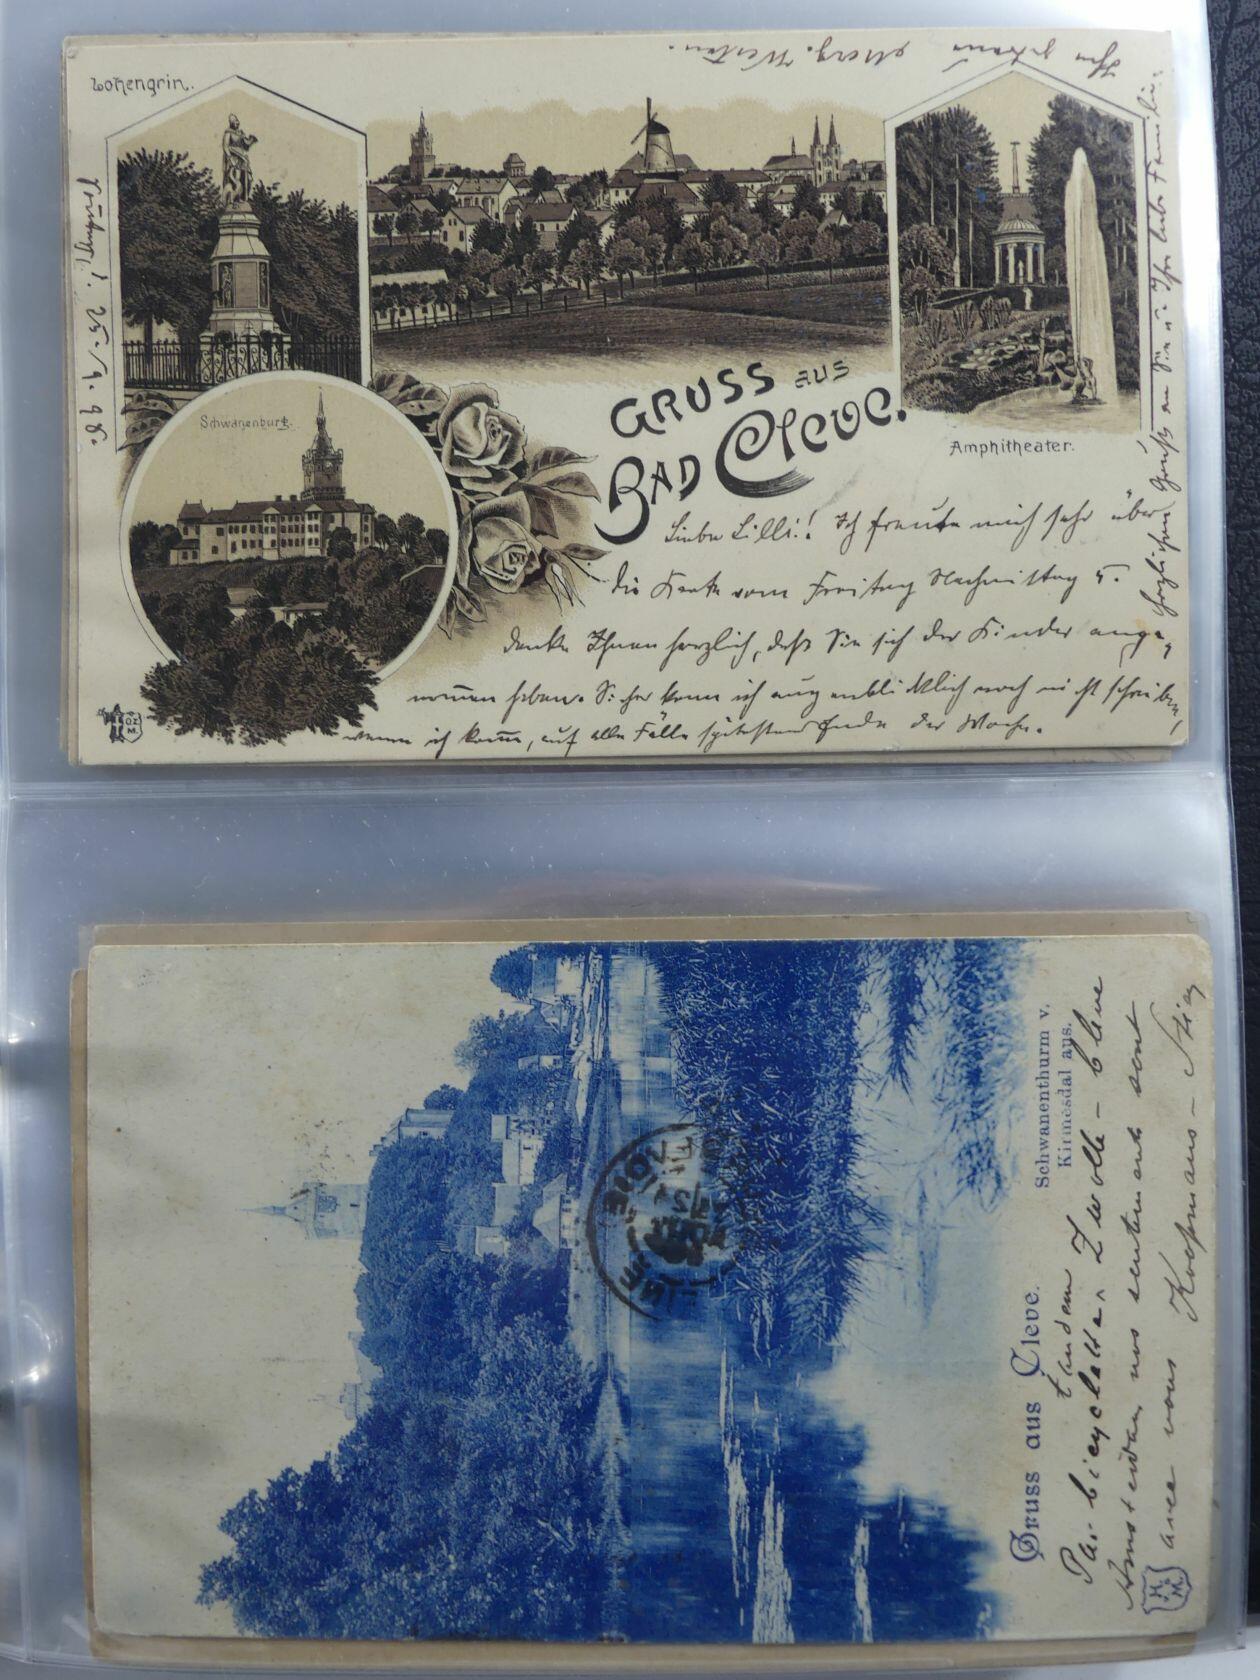 Lohengrin.
25./9. 98.
Schwanenburg.
GRUSS aus
BAD Cleve.
Amphitheater.
Liebe Lilli! Ich freute mich sehr über
die Karte vom Freitag Nachmittag u.
danke Ihnen herzlich, daß Sie sich der Kinder ange-
nommen haben. Sicher kann ich augenblicklich noch nicht schreiben,
wann ich komme, auf alle Fälle spätestens Ende der Woche.
herzlichen Gruß an Sie u. Ihre liebe Familie.
Ihr
Gruss aus Cleve.
Schwanenthurm v.
Kirmesdal aus.
tandem
Par bicyclette Zwolle - Cleve
Amsterdam nos sentiments sont
avec vous Koopmans -
H. M.